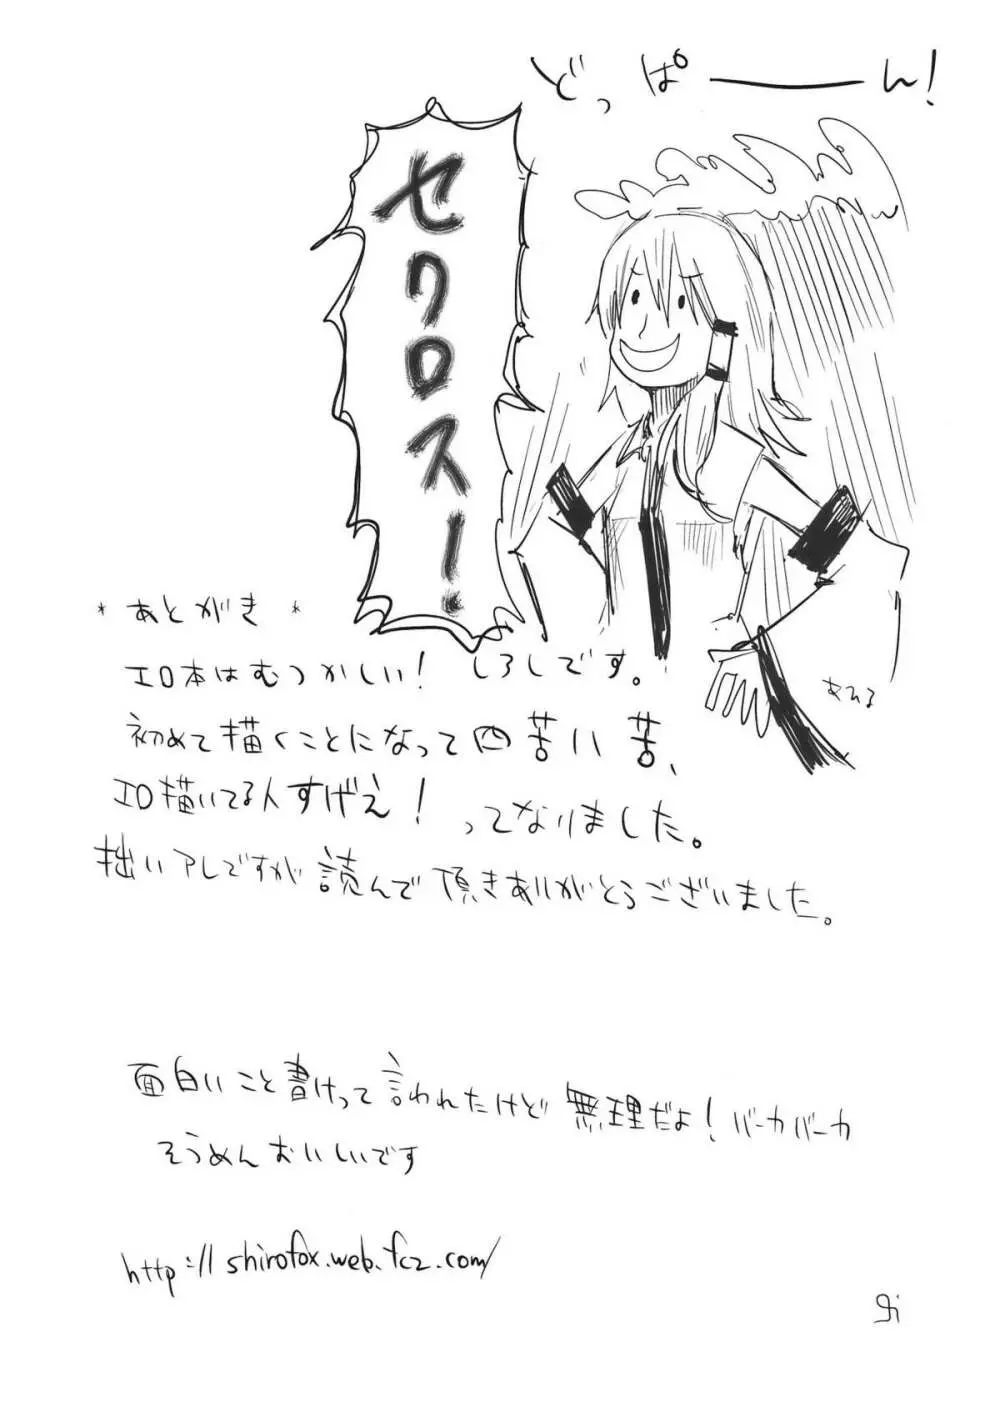 どっぱーーん!
セクロスー!
*あとがき*
エロ本はむつかしい! しろしです。
初めて描くことになって四苦八苦、
エロ描いてる人すげえ! ってなりました。
拙いアレですが読んで頂きありがとうございました。
面白いこと書けって言われたけど無理だよ!バーカバーカ
そうめんおいしいです
http://shirofox.web.fc2.com/